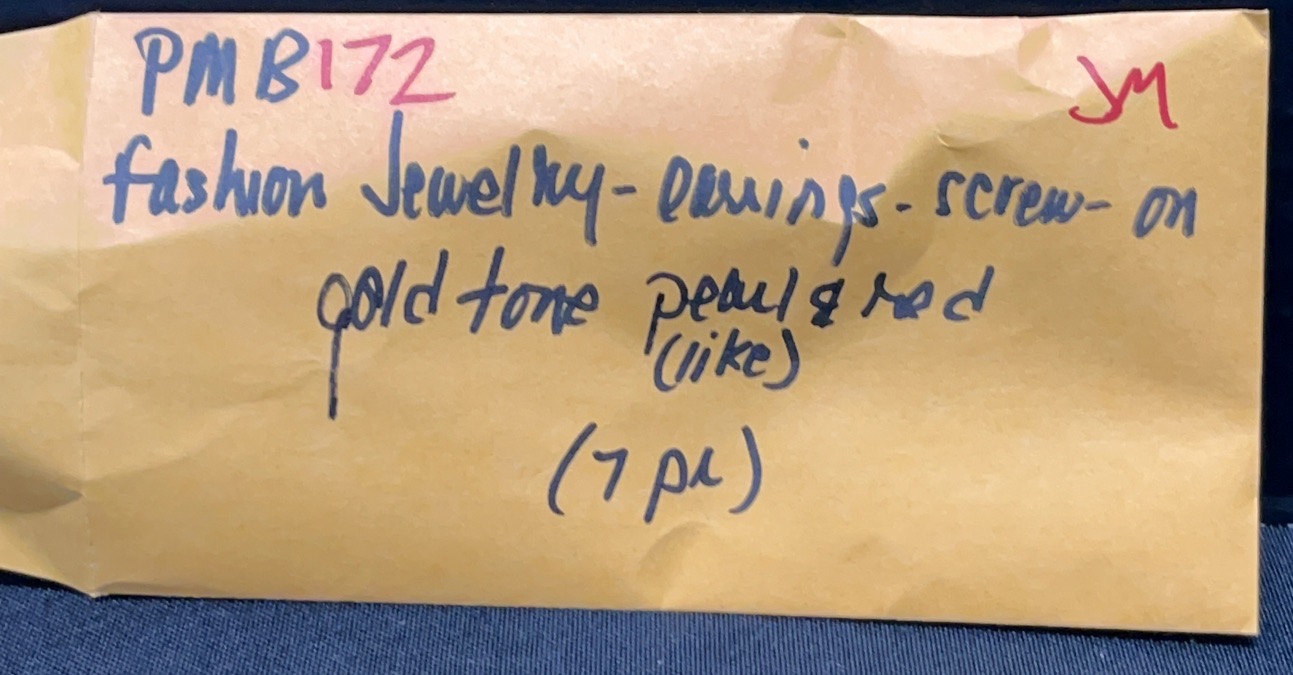 PMB172 JM
fashion Jewelry - earrings - screw - on
gold tone pearl & red
(like)
(7 pr)